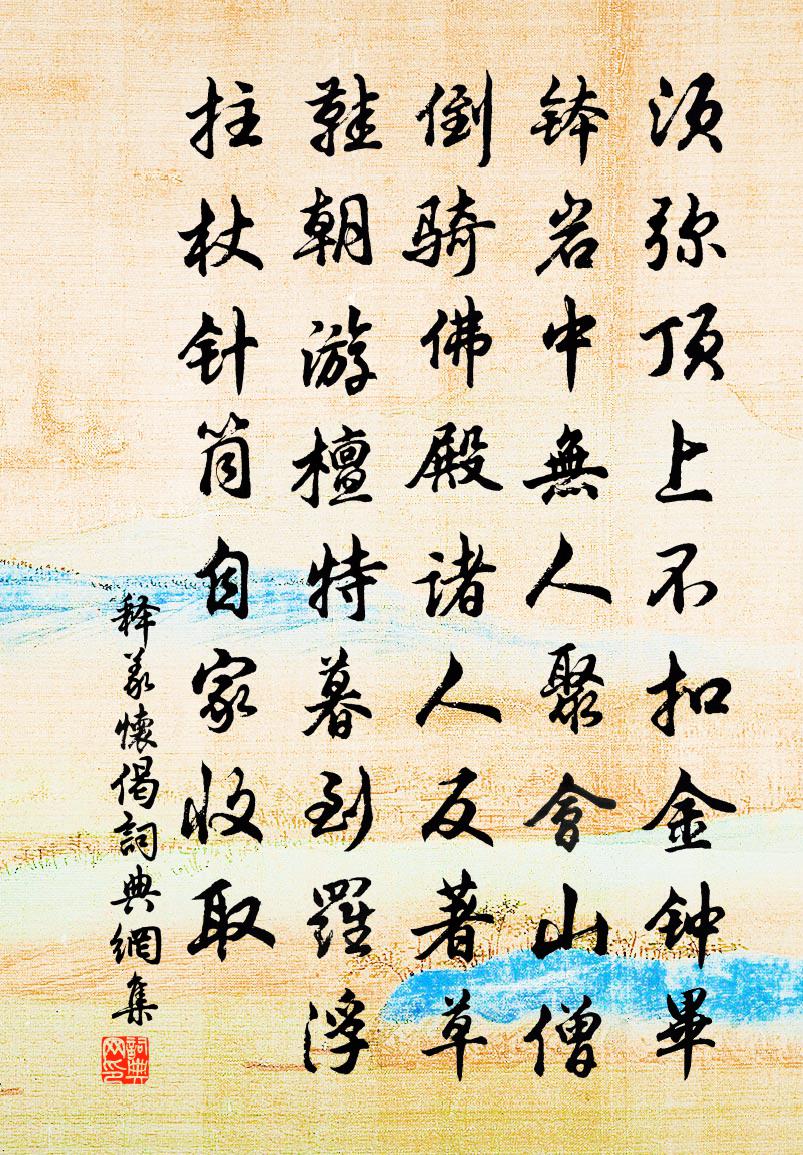 须弥顶上不扣金钟畢
钵岩中無人聚會山僧
倒骑佛殿诸人反著草
鞋朝游檀特暮到羅浮
拄杖针筒自家收取
释义懷偈詞典網集
詞典网